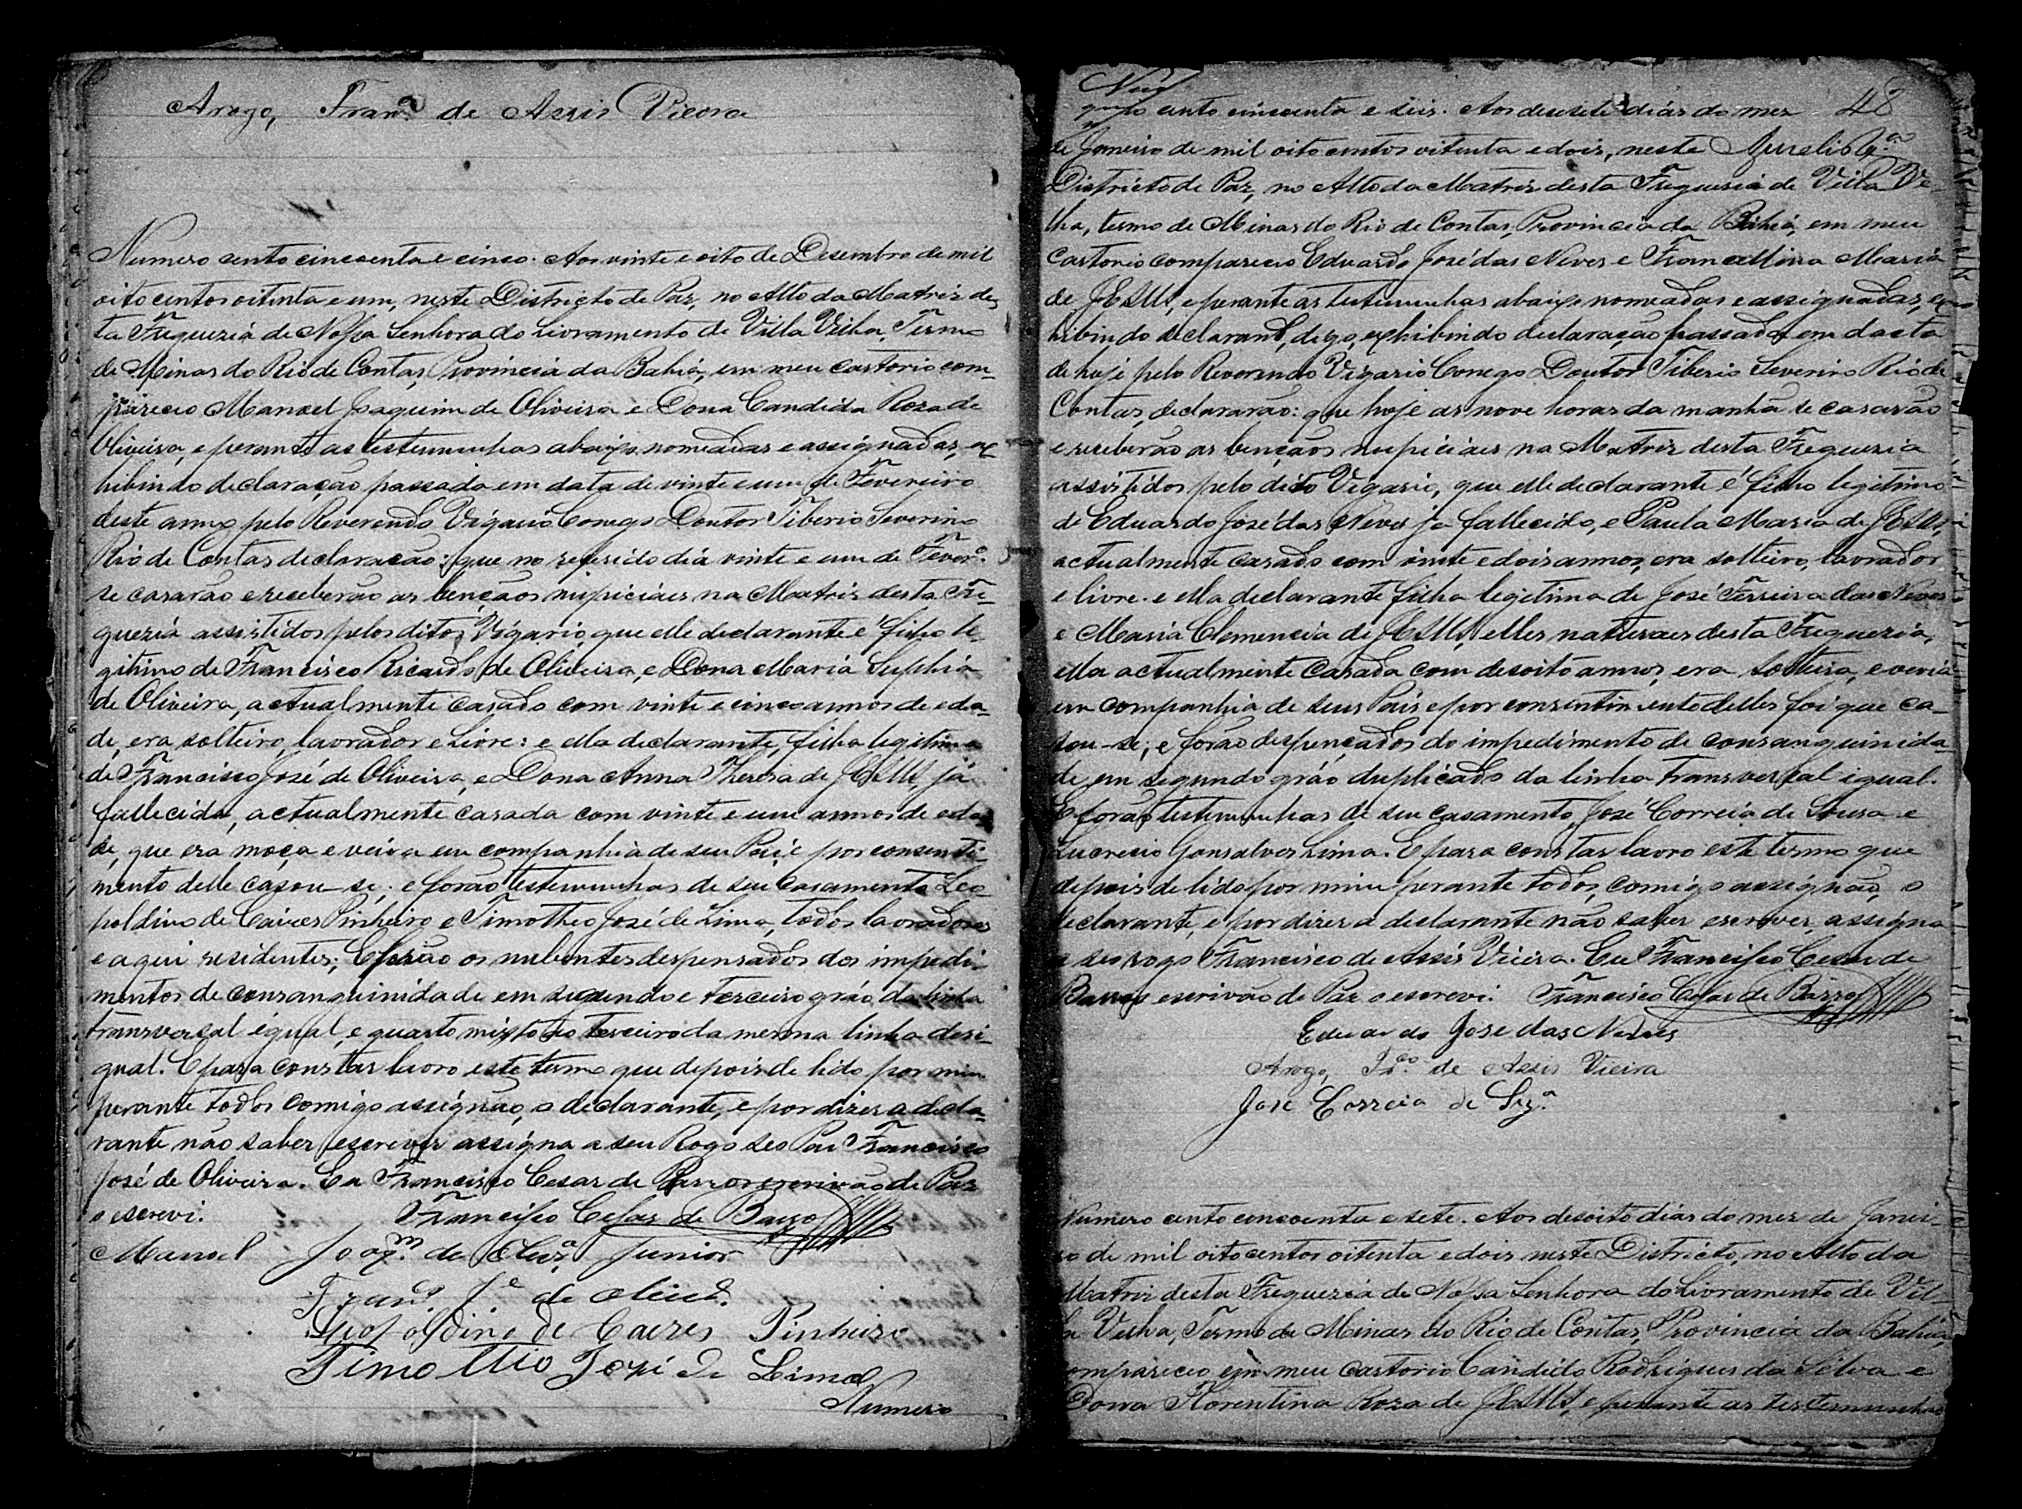 Arogo, Franco. de Assis Vieira
Numero cento cincoenta e cinco. Aos vinte e oito de Desembro de mil
oito centos oitenta e um, neste Districto de Paz, no Alto da Matriz des
ta Freguezia de Nossa Senhora do Livramento de Villa Velha, Termo
de Minas do Rio de Contas, Provincia da Bahia, em meu cartorio com-
pareceo Manoel Joaquim de Oliveira e Dona Candida Roza de
Oliveira, e perante as testemunhas abaixo nomeadas e assignadas, ex
hibindo declaração passada em data de vinte e um de Fevereiro
deste anno pelo Reverendo Vigario Conego Doutor Tiberio Severino
Rio de Contas declararão: que no referido dia vinte e um de Fever.o
se casarão e receberão as bençãos nupiciaes na Matriz desta Fre-
guezia assistidos pelos ditos Vigario, que elle declarante é filho le
gitimo de Francisco Ricardo de Oliveira, e Dona Maria Suphia
de Oliveira, actualmente casado com vinte e cinco annos de eda-
de, era solteiro, lavrador e livre: e ella declarante, filha legitima
de Francisco José de Oliveira, e Dona Anna Thereza de JESUS, já
fallecida, actualmente casada com vinte e um annos de eda
de, que era moça e vivia em companhia de seu Pai, e por consenti-
mento delle casou-se; e forão testemunhas de seu casamento Leo
poldino de Caires Pinheiro e Timotheo José de Lima, todos lavradores
e aqui residentes; E forão os nubentes despensados dos impedi-
mentos de consanguinidade em segundo e terceiro gráo da linha
transversal igual, e quarto mixto ao terceiro da mesma linha desi-
gual. E para constar lavro este termo que depois de lido por mim
perante todos comigo assignão, o declarante, e por dizer a decla-
rante não saber escrever assigna a seu Rogo seo Pai Francisco
José de Oliveira. Eu Francisco Cesar de Barros escrivão de Paz
o escrevi. Francisco Cesar de Barros
Manoel Joaqm. de Olivra. Junior
Franco. Je. de Olivra.
Leopoldino de Caires Pinheiro
Timotheo José de Lima
Numero
48
Numero cento cincoenta e seis. Aos desesete dias do mez
de Janeiro de mil oito centos oitenta e dois, neste
Districto de Paz, no Alto da Matriz desta Freguezia de Villa Ve-
lha, termo de Minas do Rio de Contas, Provincia da Bahia, em meu
Cartorio compareceo Eduardo José das Neves e Francellina Maria
de JESUS, e perante as testemunhas abaixo nomeadas e assignadas, ex
hibindo declarand, digo, exhibindo declaração passada em dacta
de hoje pelo Reverendo Vigario Conego Doutor Tiberio Severino Rio de
Contas, declararão: que hoje as nove horas da manhã se casarão
e receberão as bençãos nupiciaes na Matriz desta Freguezia
assistidos pelo dito Vigario, que elle declarante é filho legitimo
de Eduardo José das Neves ja fallecido, e Paula Maria de JESUS,
actualmente casado com vinte e dois annos, era solteiro, lavrador
e livre. e ella declarante filha legitima de José Ferreira das Neves
e Maria Clemencia de JESUS, elles naturaes desta Freguezia,
ella actualmente casada com desoito annos, era solteira, e vevia
em companhia de seus Pais e por consentimento delles foi que ca-
sou-se; e forão despençados do impedimento de consanguinida-
de em segundo gráo duplicado da linha transversal igual.
E forão testemunhas de seu casamento, José Correia de Sousa e
Lucrecio Gonsalves Lima. E para constar lavro este termo que
depois de lido por mim perante todos, comigo assignão, o
declarante, e por dizer a declarante não saber escrever, assigna
a seo rogo Francisco de Assis Vieira. Eu Francisco Cesar de
Barros escrivão de Paz o escrevi. Francisco Cesar de Barros
Eduardo José das Neves
Arogo, Frco. de Assis Vieira
José Correia de Sza.
Numero cento cincoenta e sete. Aos desoito dias do mez de Janei-
ro de mil oito centos oitenta e dois neste Districto, no Alto da
Matriz desta Freguezia de Nossa Senhora do Livramento de Vil-
la Velha, Termo de Minas do Rio de Contas, Provincia da Bahia,
compareceo em meu cartorio Candido Rodrigues da Silva e
Dona Florentina Roza de JESUS, e perante as testemunhas